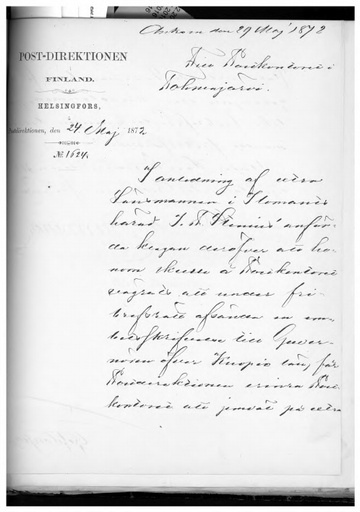 Ankom den 29 Maj 1872
POST-DIREKTIONEN
FINLAND.
HELSINGFORS,
Postdirektionen, den 24 Maj 1872.
No 1624.
Till Postkontoret i
Tohmajärvi.
I anledning af extra
Länsmannen i Ilomants
härad J. A. anför-
da klagan deröfver att ho-
nom skulle å Postkontoret
vägrats att under fri-
brefsrätt afsända en em-
betsskrifvelse till Guver-
nören öfver Kuopio län, får
Postdirektionen erinra Post-
kontoret att jemväl på extra